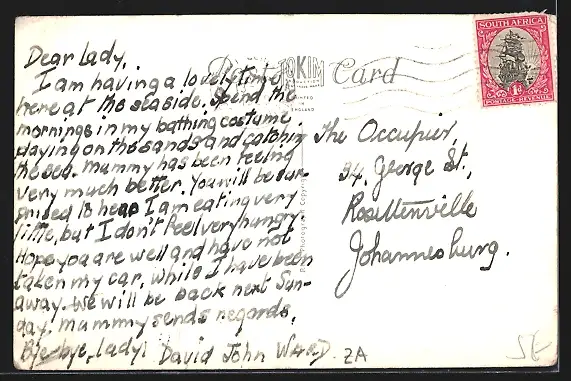 Dear Lady,
I am having a lovely time
here at the seaside. Spend the
mornings in my bathing costume
playing on the sands and
the sea. Mummy has been feeling
very much better. You will be sur-
prised to hear I am eating very
little, but I don't feel very hungry.
Hope you are well and have not
taken my car, while I have been
away. We will be back next Sun-
day. Mummy sends regards.
Bye-bye, Lady,
David John WARD. ZA
Card
TOKIM
SOUTH AFRICA
1d
POSTAGE REVENUE
The Occupier,
94, George St.,
Rosettenville
Johannesburg.